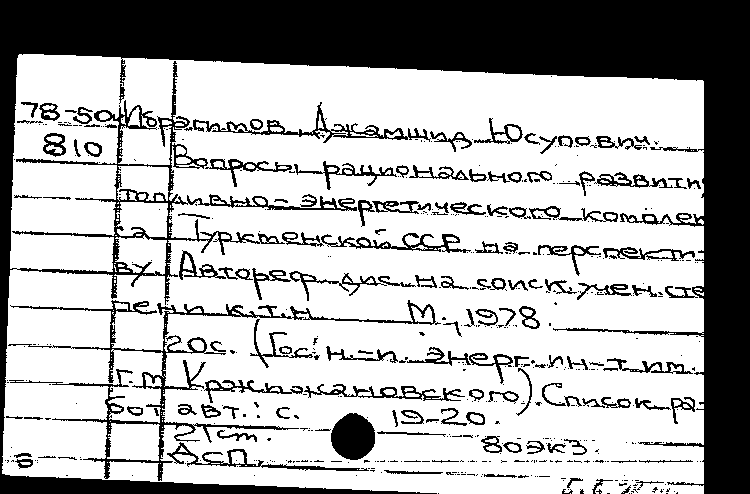 78-50 Ибрагимов, Джамшид Юсупович.
810 Вопросы рационального развити
топливно-энергетического комплек
са Туркменской ССР на перспекти-
ву. Автореф. дис. на соиск. учен. сте
пени к.т.н М., 1978.
20с. (Гос. н.-и. энерг. ин-т им.
Г.М Кржижановского). Список ра-
бот авт.: с. 19-20.
21ст. 80экз.
ДСП.